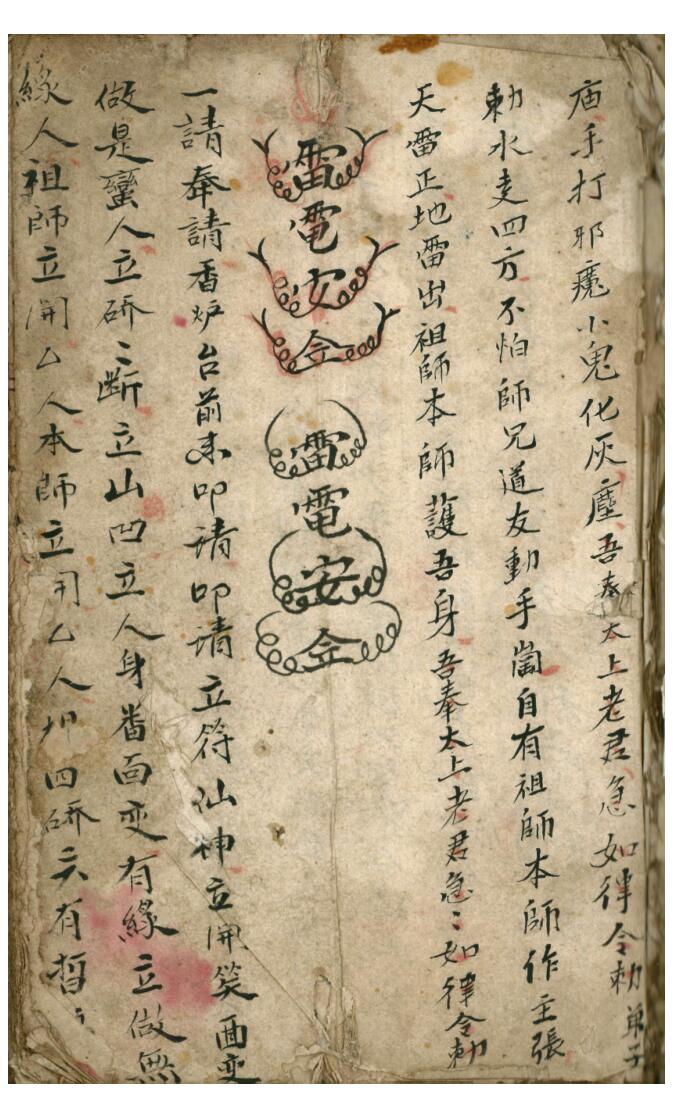 庙手打邪魔小鬼化灰塵吾奉太上老君急如律令勅 弟子
勅水走四方不怕師兄道友動手當自有祖師本師作主張
天雷正地雷出祖師本師護吾身吾奉太上老君急〻如律令勅
雷電安令
雷電安令
一請奉請香炉台前来叩请叩请立符仙神立開笑面变
做是蠻人立砕〻断立山凹立人身番面变有緣立做無
緣人祖師立開厶人本師立開厶人四砕六有